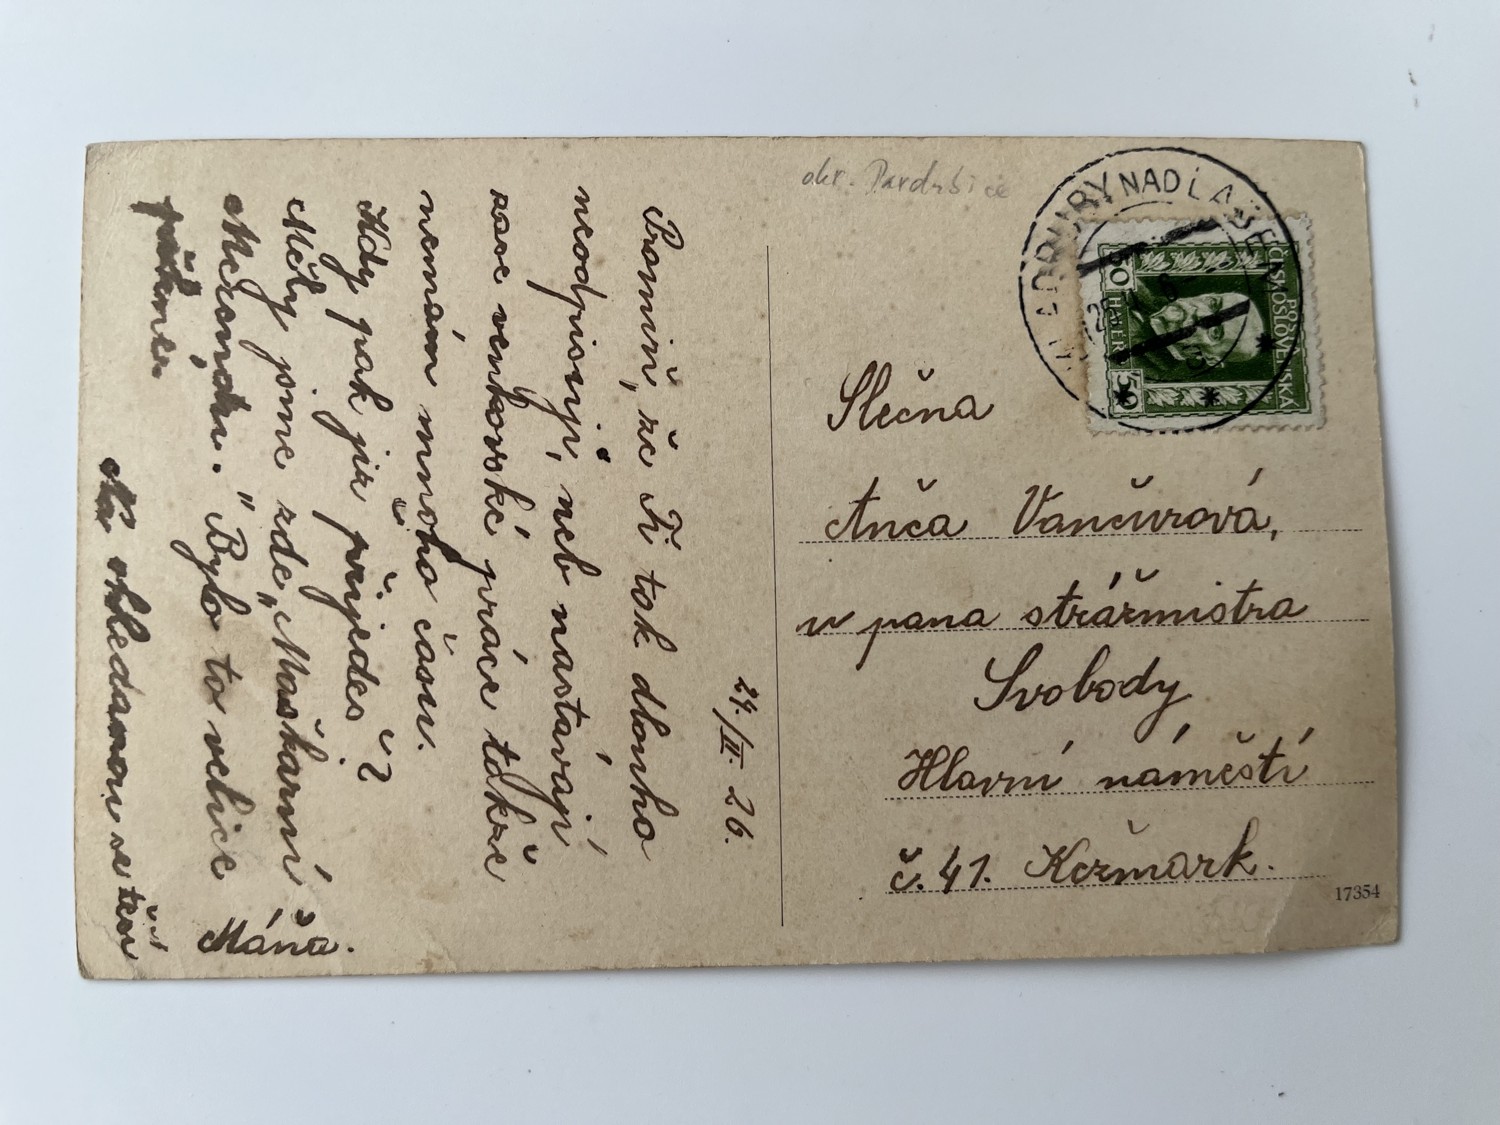 24./III. 26.
Promiň, že Ti tak dlouho
neodpisuji, neb nastávají
zase venkovské práce takže
nemám mnoho času.
Kdy pak jiz přijedeš?
Měly jsme zde „Maškarní
Merendu." Bylo to velice
Na shledanou se těší
Máňa.
okr. Pardubice
NAD LABEM
POŠTA
ČESKOSLOVENSKÁ
50 HALÉŘŮ 50
Slečna
Anča Vančurová,
u pana strážmistra
Svobody
Hlavní náměstí
č. 41. Kežmark.
17354